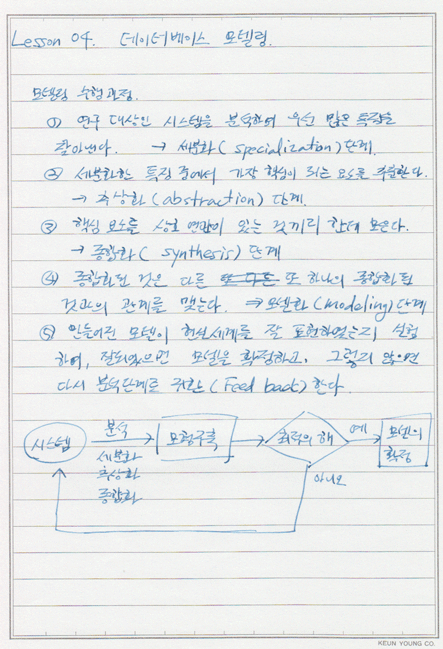 Lesson 04. 데이터베이스 모델링.
모델링 수행과정.
① 연구 대상인 시스템을 분석하여 우선 많은 특징을
잡아낸다. → 세분화(specialization)단계.
② 세분화한 특징 중에서 가장 핵심이 되는 요소를 추출한다.
→ 추상화(abstraction)단계.
③ 핵심 요소를 상호 연관이 있는 것끼리 한데 모은다.
→ 종합화( synthesis)단계
④ 종합화된 것은 다른 또 하나의 종합화된
것과의 관계를 맺는다. ⇒ 모델화(modeling)단계
⑤ 만들어진 모델이 현실세계를 잘 표현하였는지 실험
하여, 잘되었으면 모델은 확정하고, 그렇지 않으면
다시 분석단계로 귀환(Feed back)한다.
시스템
분석
세분화
추상화
종합화
모형구축
최적의 해
예
아니오
모델의
확정
KEUN YOUNG CO.